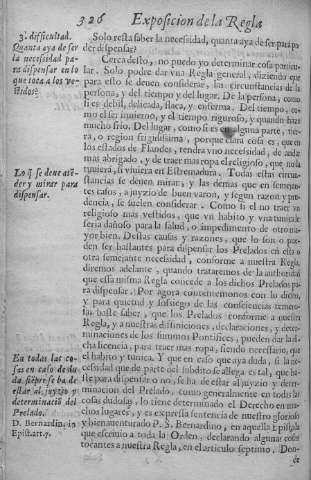 326 Exposicion de la Regla
3. dificultad.
Quanta aya de ser
la necesidad pa-
ra dispensar en lo
que toca a los ve-
stidos?
Solo resta saber la necessidad, quanta aya de ser para po-
der dispensar?
Cerca desto, no puedo yo determinar cosa particu-
lar. Solo podre dar vna Regla general, diziendo que
para esto se deuen considerar, las circunstancias de la
persona, y del tiempo y del lugar. De la persona, como
si es debil, delicada, flaca, y enferma. Del tiempo, co-
mo el ser inuierno, y el tiempo riguroso, y quando haze
mucho frio. Del lugar, como si es en alguna parte, tier-
ra, o region frigidissima, porque clara cosa es, que en
los estados de Flandes, tendra vno necessidad, de andar
mas abrigado, y de traer mas ropa el religioso, que no la
tuuiera, si viuiera en Estremadura. Todas estas circuns-
tancias se deuen mirar, y las demas que en semejan-
tes casos, a juyzio de buen varon, y segun razon y pru-
dencia, se suelen considerar. Como si el no traer vn
religioso mas vestidos, que vn habito y vna tunica le
seria dañoso para la salud, o impedimento de otro ma-
yor bien. Destas causas y razones, que lo son o pue-
den ser bastantes para dispensar los Prelados en esta o
otra semejante necessidad, conforme a nuestra Regla,
diremos adelante, quando trataremos de la authoridad
que essa misma Regla concede a los dichos Prelados pa-
ra dispensar. Por agora contentemonos con lo dicho,
y para quietud y sossiego de las consciencias temero-
sas baste saber, que los Prelados conforme a nuestra
Regla, y a nuestras diffiniciones, declaraciones, y deter-
minaciones de los summos Pontifices, pueden dar la di-
cha licencia, para traer mas ropa, siendo necessario, que
el habito y tunica. Y que en caso que aya duda, si la ne-
cessidad que de parte del subdito se allega es tal, que ba-
ste para dispensar o no, se ha de estar al juyzio y deter-
minacion del Prelado, como generalmente en todas las
cosas dudosas, lo tiene determinado el Derecho en mu-
chos lugares, y es expressa sentencia de nuestro glorioso
y bienauenturado P. S. Bernardino, en aquella Epistola
que escriuio a toda la Orden, declarando algunas cosas
tocantes a nuestra Regla, en el articulo septimo. Don-
de
Lo q̃ se deue atẽ-
der y mirar para
dispensar.
En todas las co-
sas en caso de du-
da, siẽpre se ha de
estar al juyzio y
determinaciõ del
Prelado.
D. Bernardin. in
Epist. art. 7.